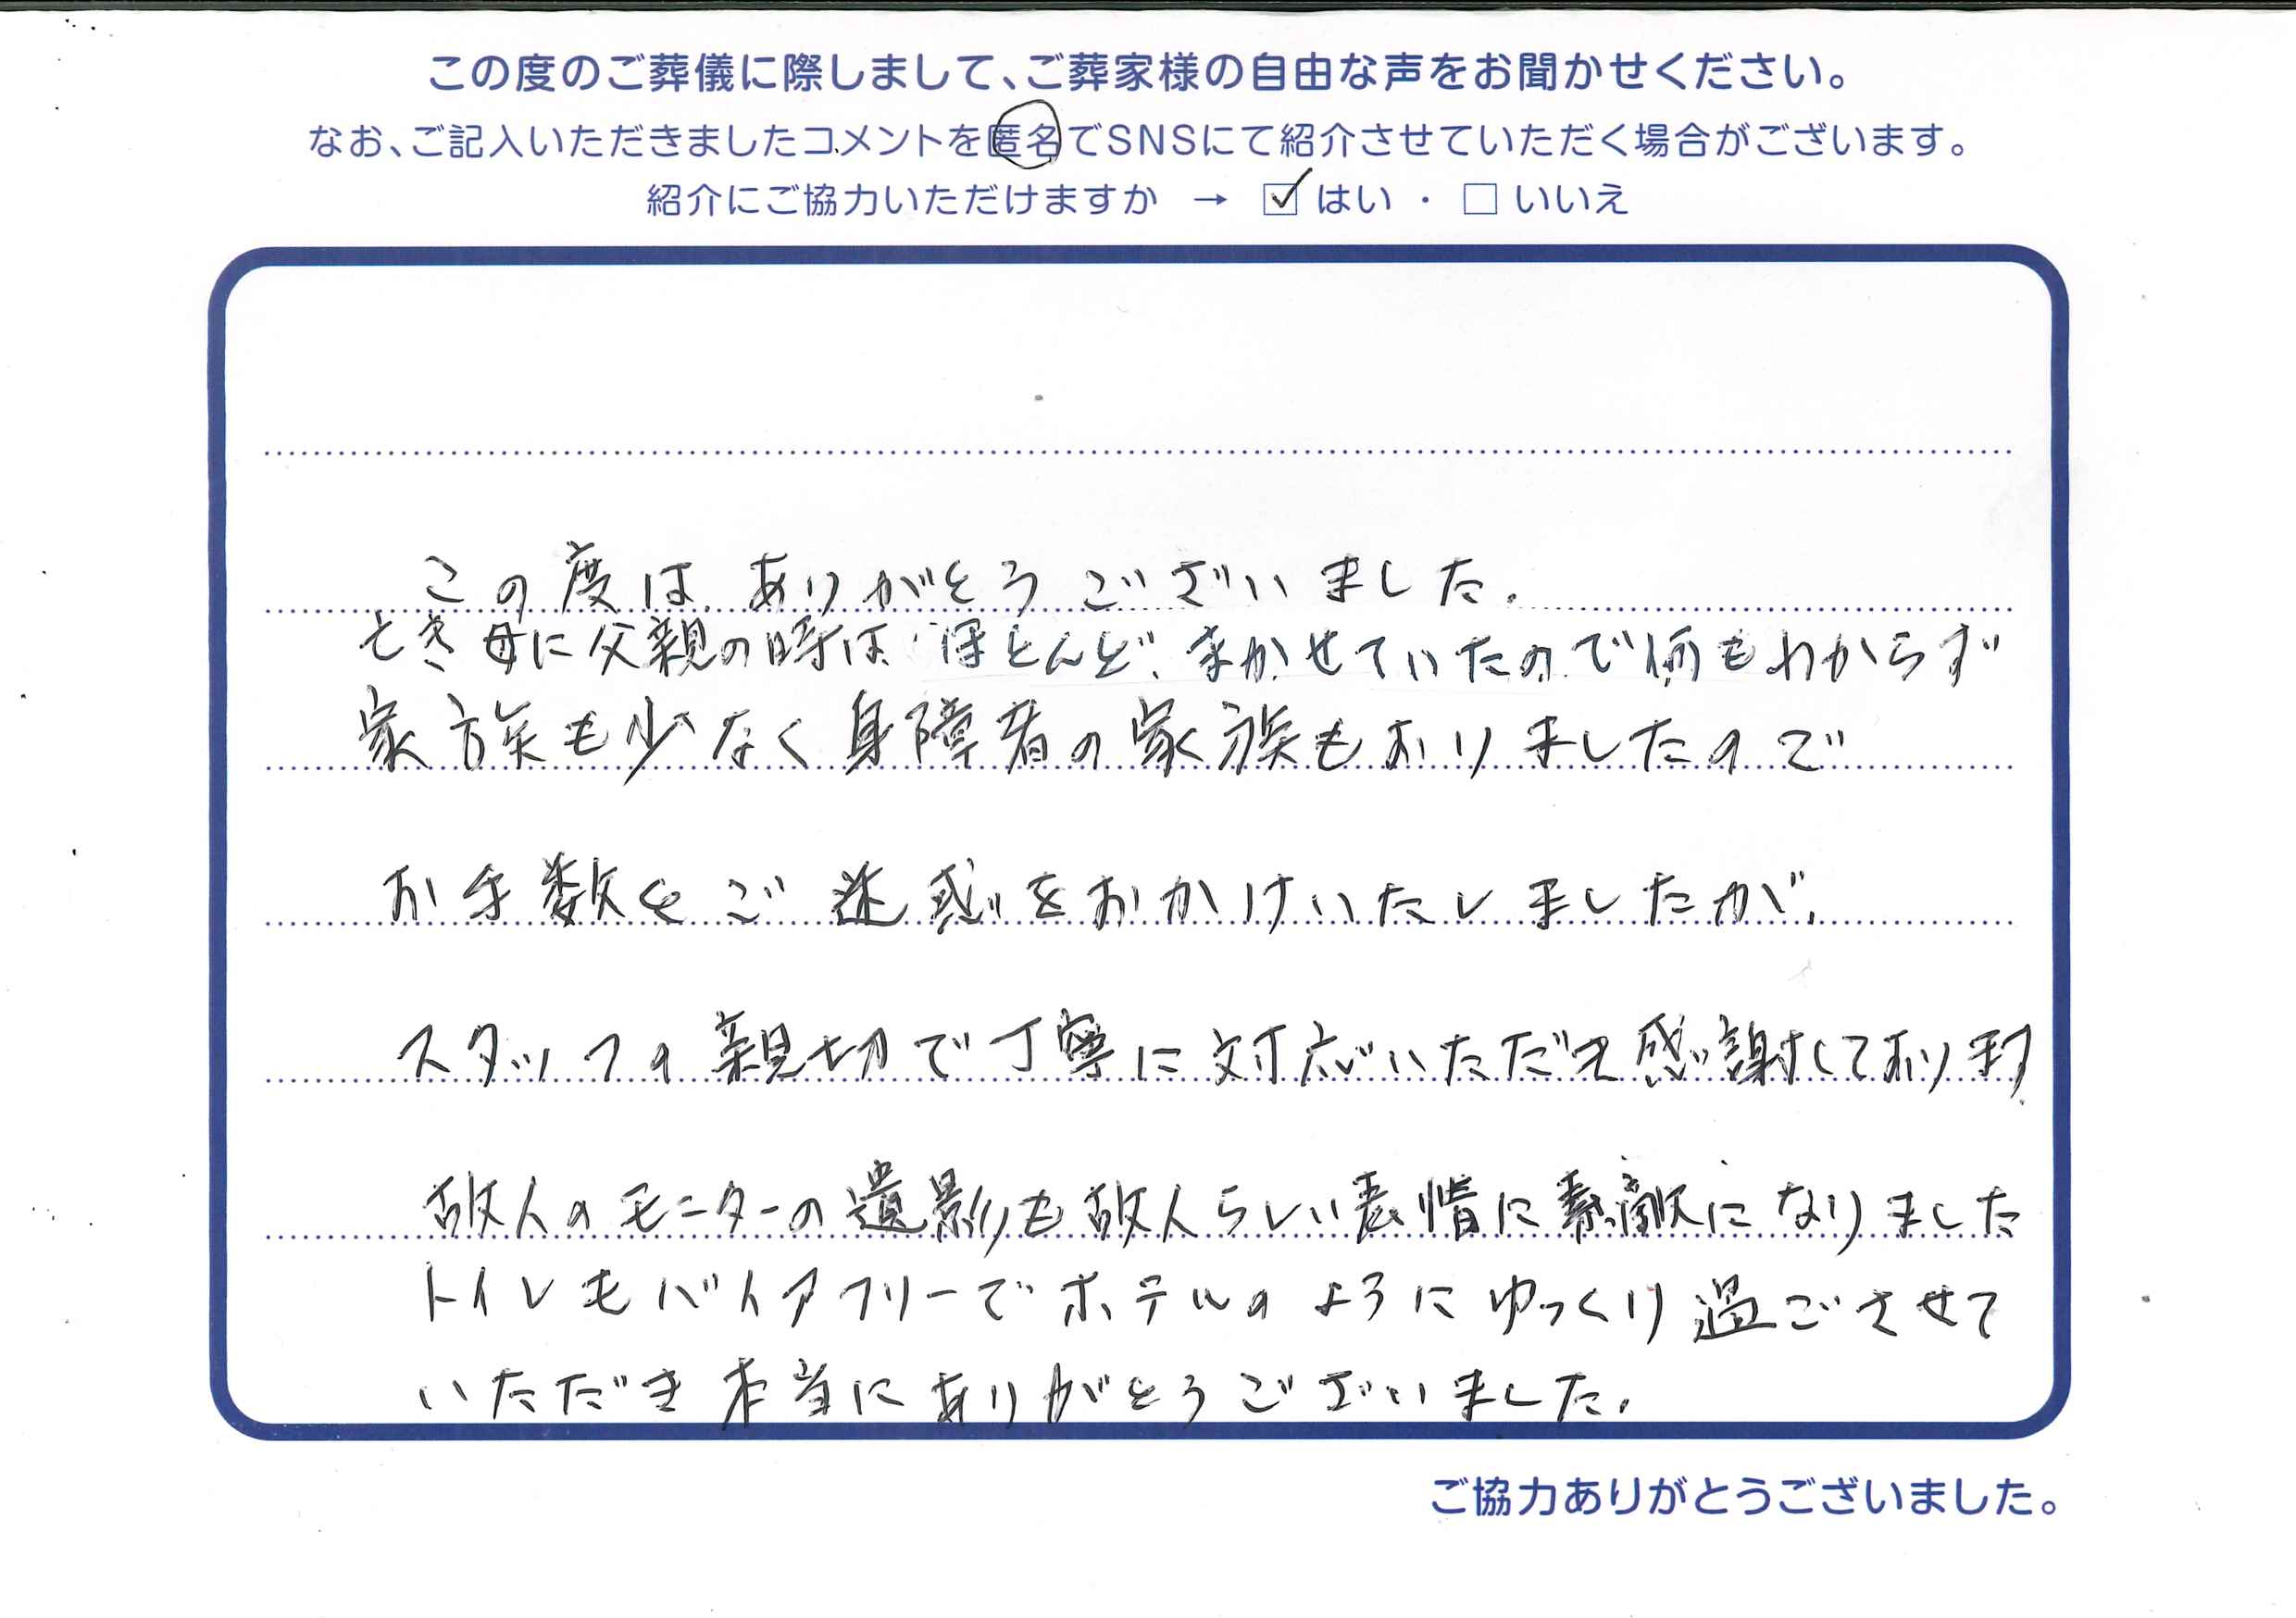 この度のご葬儀に際しまして、ご葬家様の自由な声をお聞かせください。
なお、ご記入いただきましたコメントを匿名でSNSにて紹介させていただく場合がございます。
紹介にご協力いただけますか → ☑ はい ・ □ いいえ
この度は、ありがとうございました。
とき 母に父親の時は ほとんど、まかせていたので何もわからず
家族も少なく身障者の家族もおりましたので
お手数とご迷惑をおかけいたしましたが、
スタッフの親切で丁寧に対応いただえ感謝しております
故人のモニターの遺影も故人らしい表情に素敵になりました
トイレもバイアフリーでホテルのようにゆっくり過ごさせて
いただき本当にありがとうございました。
ご協力ありがとうございました。